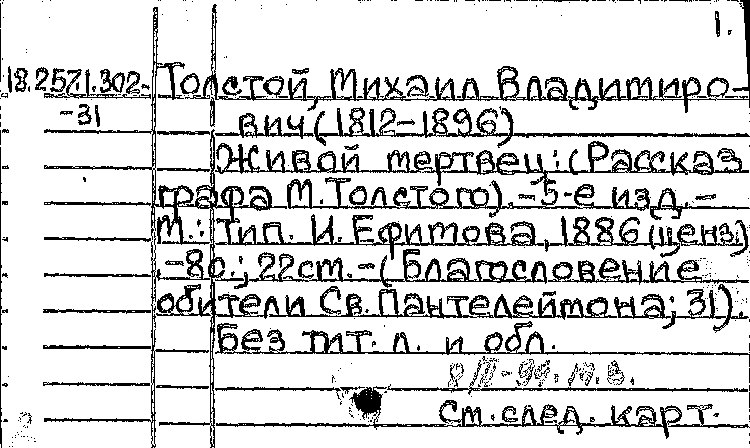 1.
18.257.1.302- Толстой, Михаил Владимиро-
-31 вич (1812-1896)
Живой мертвец: (Рассказ
графа М. Толстого). - 5-е изд. -
М.: Тип. И. Ефимова, 1886 (ценз.)
. - 8с.; 22см. - (Благословение
обители Св. Пантелеймона; 31).
Без тит. л. и обл.
См. след. карт.